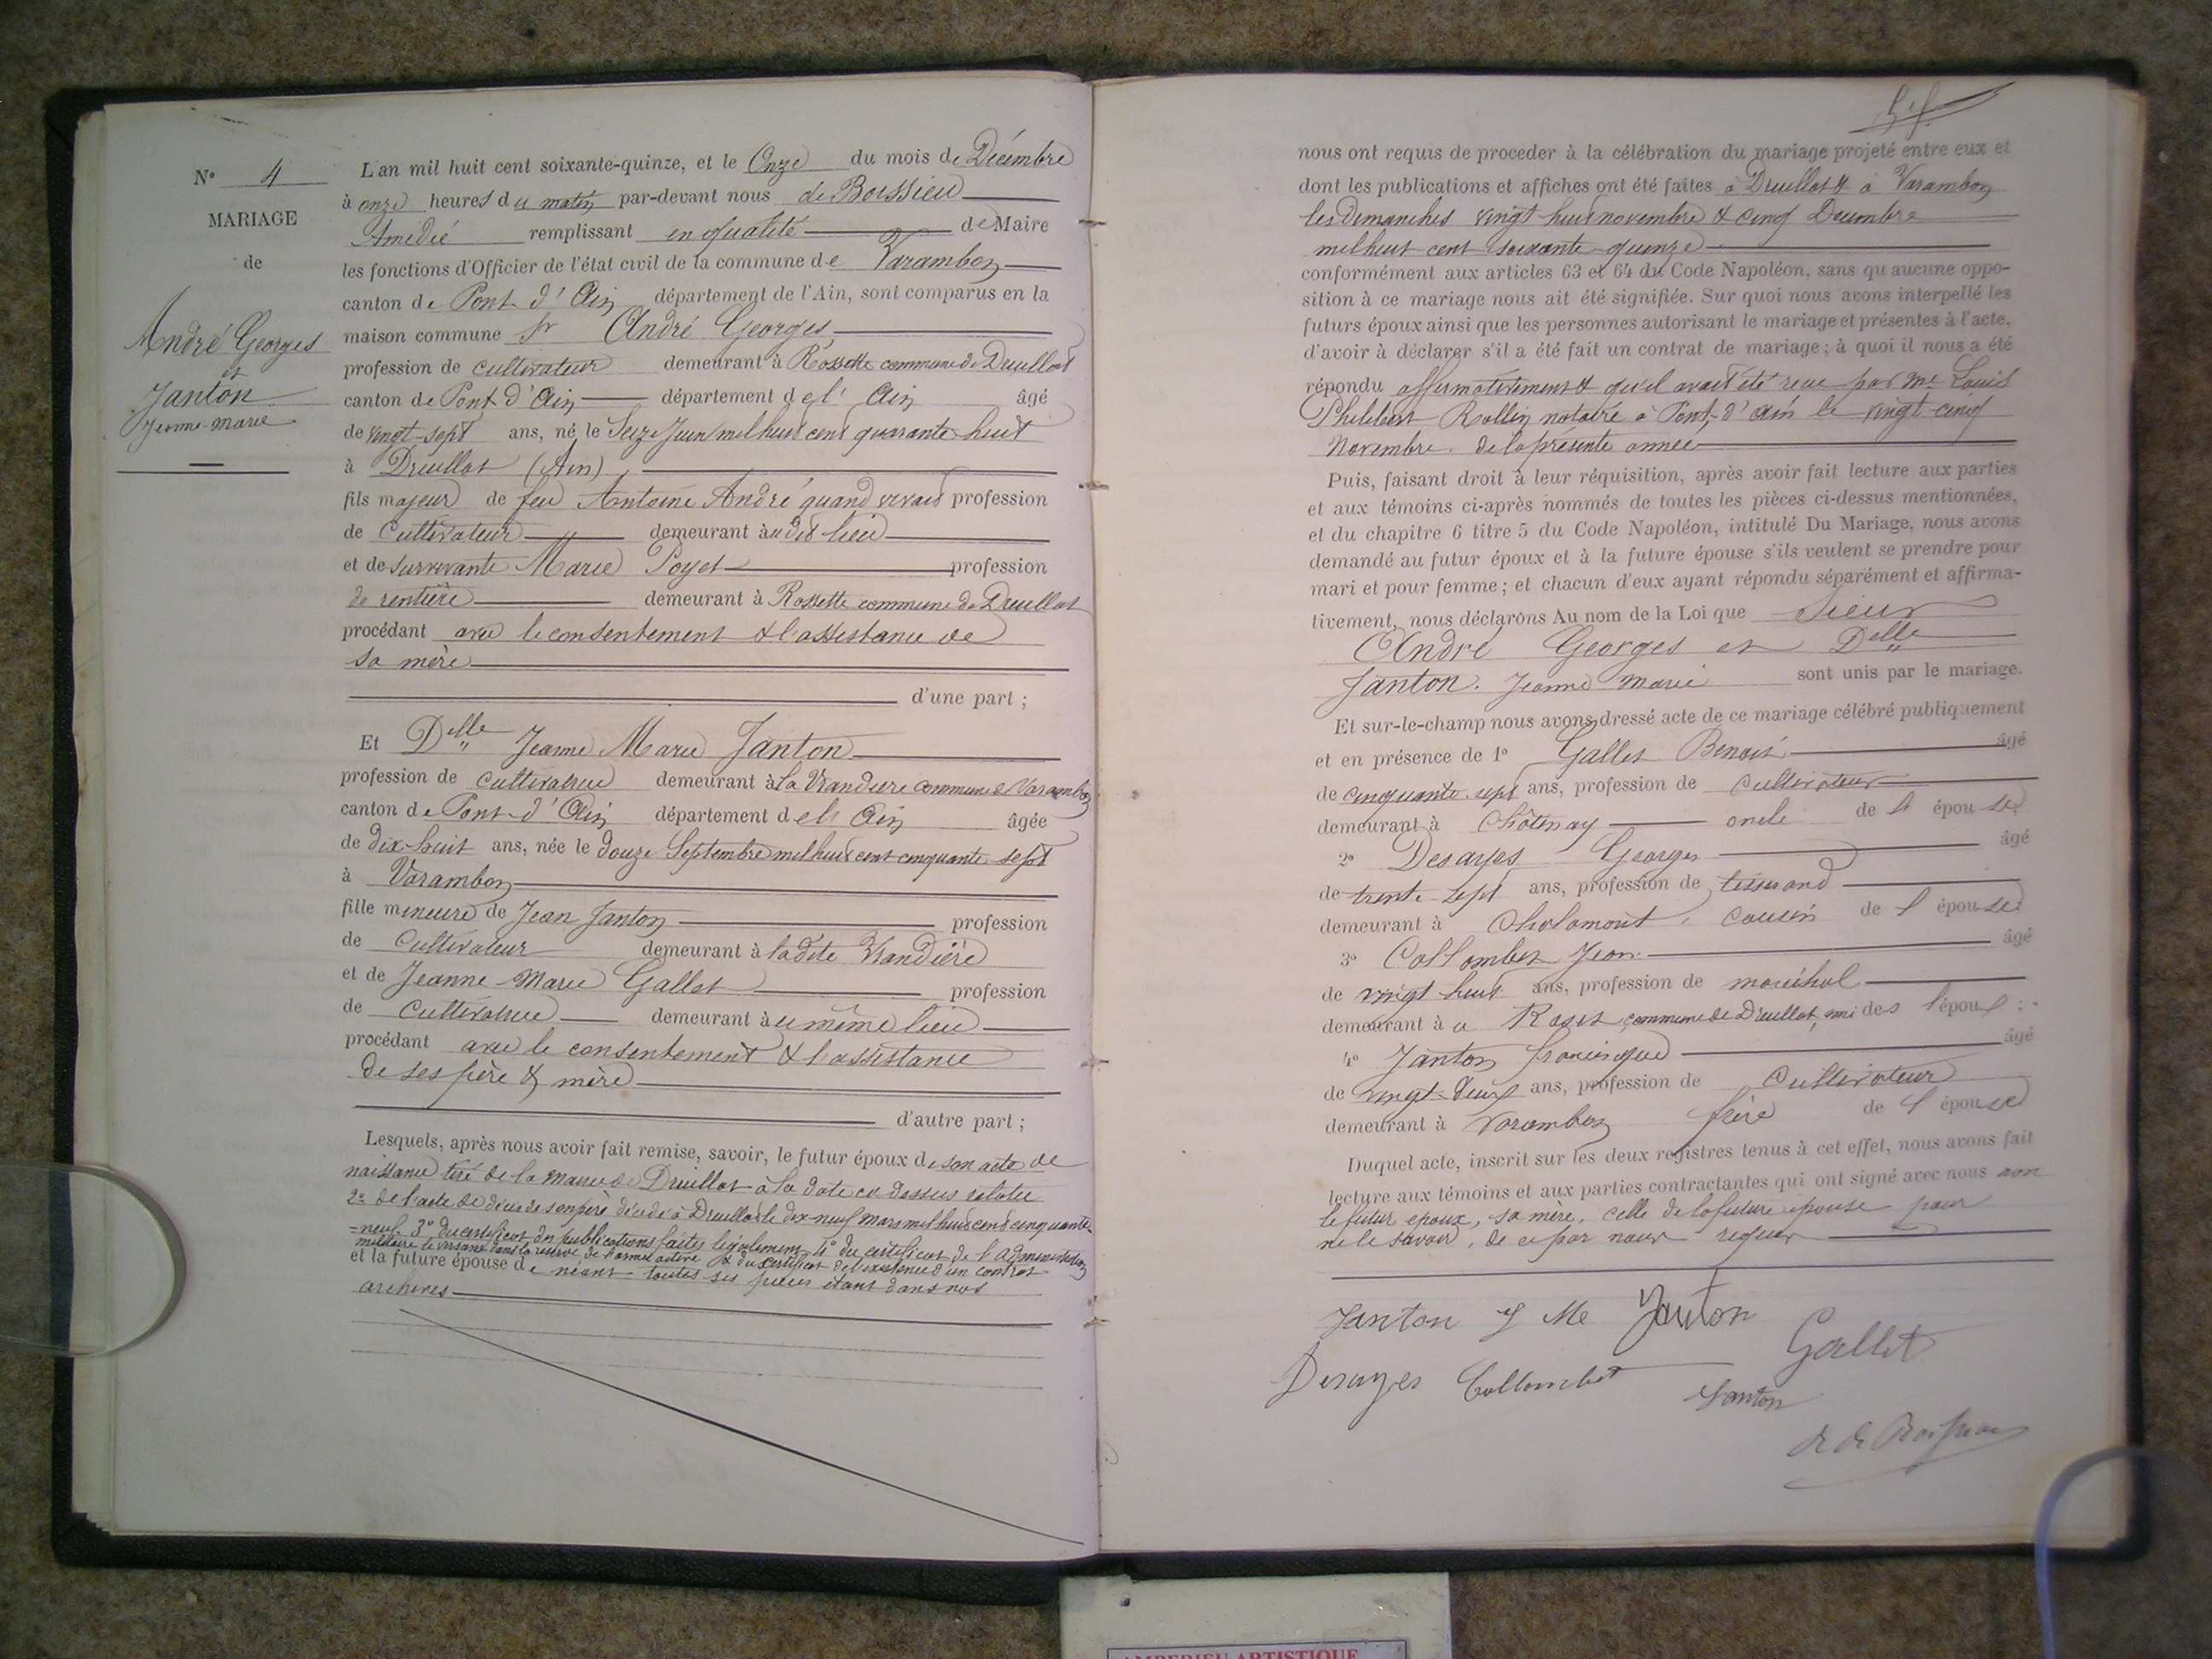 N° 4
MARIAGE
de
André Georges
et
Janton
Jeanne-marie
L'an mil huit cent soixante-quinze, et le Onze du mois de Décembre
à onze heures du matin par-devant nous de Boissieu
Amédié remplissant en qualité de Maire
les fonctions d'Officier de l'état civil de la commune de Varambon
canton de Pont d'Ain département de l'Ain, sont comparus en la
maison commune sr André Georges
profession de cultivateur demeurant à Rossette commune de Druillat
canton de Pont d'Ain département de l'Ain âgé
de vingt-sept ans, né le Seize Juin mil huit cent quarante-huit
à Druillat (Ain)
fils majeur de feu Antoine André quand vivait profession
de Cultivateur demeurant au dit lieu
et de survivante Marie Poyet profession
de rentière demeurant à Rossette commune de Druillat
procédant avec le consentement & l'assistance de
sa mère
d'une part ;
Et Delle Jeanne Marie Janton
profession de cultivatrice demeurant à la Vrandière commune de Varambon
canton de Pont-d'Ain département de l'Ain âgée
de dix-huit ans, née le douze Septembre mil huit cent cinquante-sept
à Varambon
fille mineure de Jean Janton profession
de Cultivateur demeurant à ladite Vrandière
et de Jeanne-Marie Gallet profession
de Cultivatrice demeurant au même lieu
procédant avec le consentement & l'assistance
de ses père & mère
d'autre part ;
Lesquels, après nous avoir fait remise, savoir, le futur époux de son acte de
naissance tiré de la mairie de Druillat à la date ci dessus relatée
2° de l'acte de décès de son père décédé à Druillat le dix-neuf mars mil huit cent cinquante
=neuf. 3° du certificat des publications faites légalement 4° du certificat de l'administration
militaire le versant dans la réserve de l'armée active & du certificat de l'existence d'un contrat
et la future épouse de néant toutes ses pièces étant dans nos
archives
nous ont requis de proceder à la célébration du mariage projeté entre eux et
dont les publications et affiches ont été faites à Druillat & à Varambon
les dimanches vingt huit novembre & cinq Décembre
mil huit cent soixante-quinze
conformément aux articles 63 et 64 du Code Napoléon, sans qu aucune oppo-
sition à ce mariage nous ait été signifiée. Sur quoi nous avons interpellé les
futurs époux ainsi que les personnes autorisant le mariage et présentes à l'acte,
d'avoir à déclarer s'il a été fait un contrat de mariage ; à quoi il nous a été
répondu affirmativement & qu'il avait été reçu par me Louis
Philibert Rollin notaire à Pont-d'ain le vingt-cinq
Novembre de la présente année
Puis, faisant droit à leur réquisition, après avoir fait lecture aux parties
et aux témoins ci-après nommés de toutes les pièces ci-dessus mentionnées,
et du chapitre 6 titre 5 du Code Napoléon, intitulé Du Mariage, nous avons
demandé au futur époux et à la future épouse s'ils veulent se prendre pour
mari et pour femme ; et chacun d'eux ayant répondu séparément et affirma-
tivement, nous déclarons Au nom de la Loi que Sieur
André Georges et Delle
Janton. Jeanne marie sont unis par le mariage.
Et sur-le-champ nous avons dressé acte de ce mariage célébré publiquement
et en présence de 1° Gallet Benoit âgé
de cinquante-sept ans, profession de Cultivateur
demeurant à Châtenay oncle de l'épouse
2° Desayes Georges âgé
de trente-sept ans, profession de tisserand
demeurant à Chalamont, cousin de l'épouse
3° Collombet Jean âgé
de vingt huit ans, profession de maréchal
demeurant à a Rosset commune de Druillat, ami des l'époux
4° Janton françois âgé
de vingt-deux ans, profession de Cultivateur
demeurant à Varambon frère de l'épouse
Duquel acte, inscrit sur les deux registres tenus à cet effet, nous avons fait
lecture aux témoins et aux parties contractantes qui ont signé avec nous non
le futur époux, sa mère, celle de la future épouse pour
ne le savoir, de ce par nous requis
Janton J Me Janton Gallet
Desayes Collombet Janton
A de Boissieu
AMBERIEU ARTISTIQUE